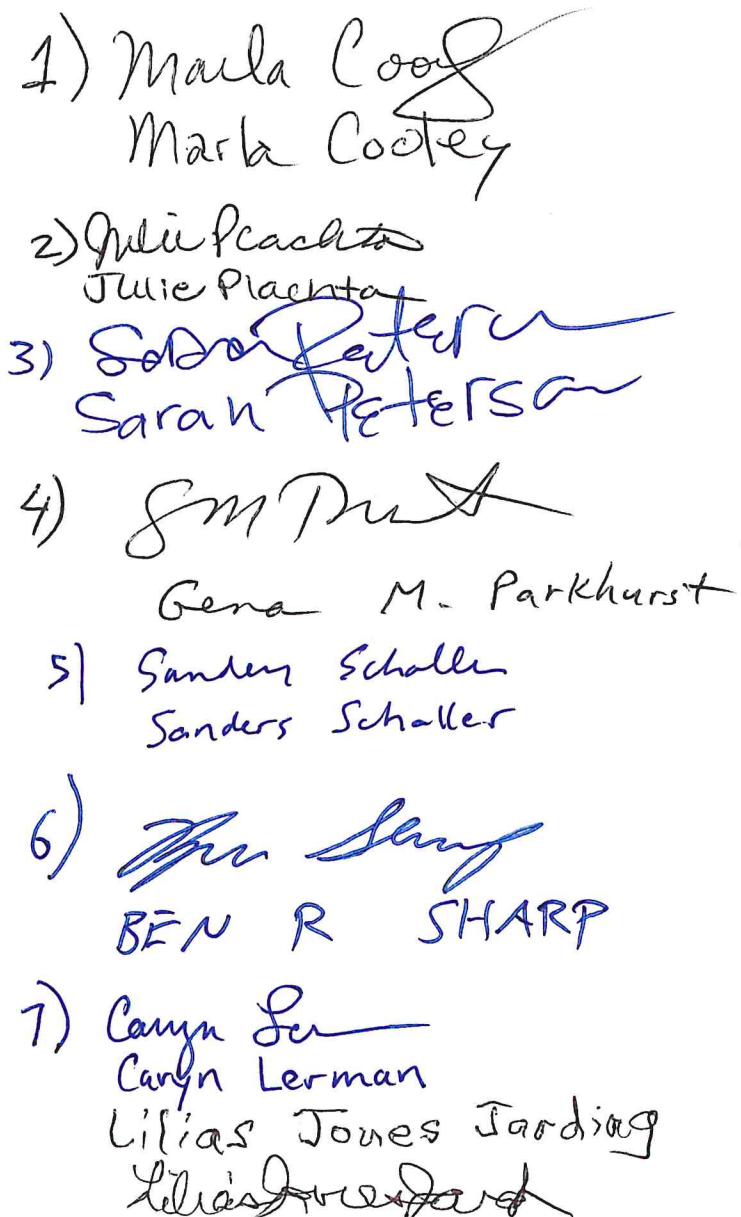 1) Marla Cooley
Marla Cooley
2) Julie Plachta
Julie Plachta
3) Sarah Peterson
Sarah Peterson
4) GM
Gena M. Parkhurst
5) Sanders Schaller
Sanders Schaller
6)
BEN R SHARP
7) Caryn
Caryn Lerman
Lilias Jones Jarding
Lilias Jones Jard